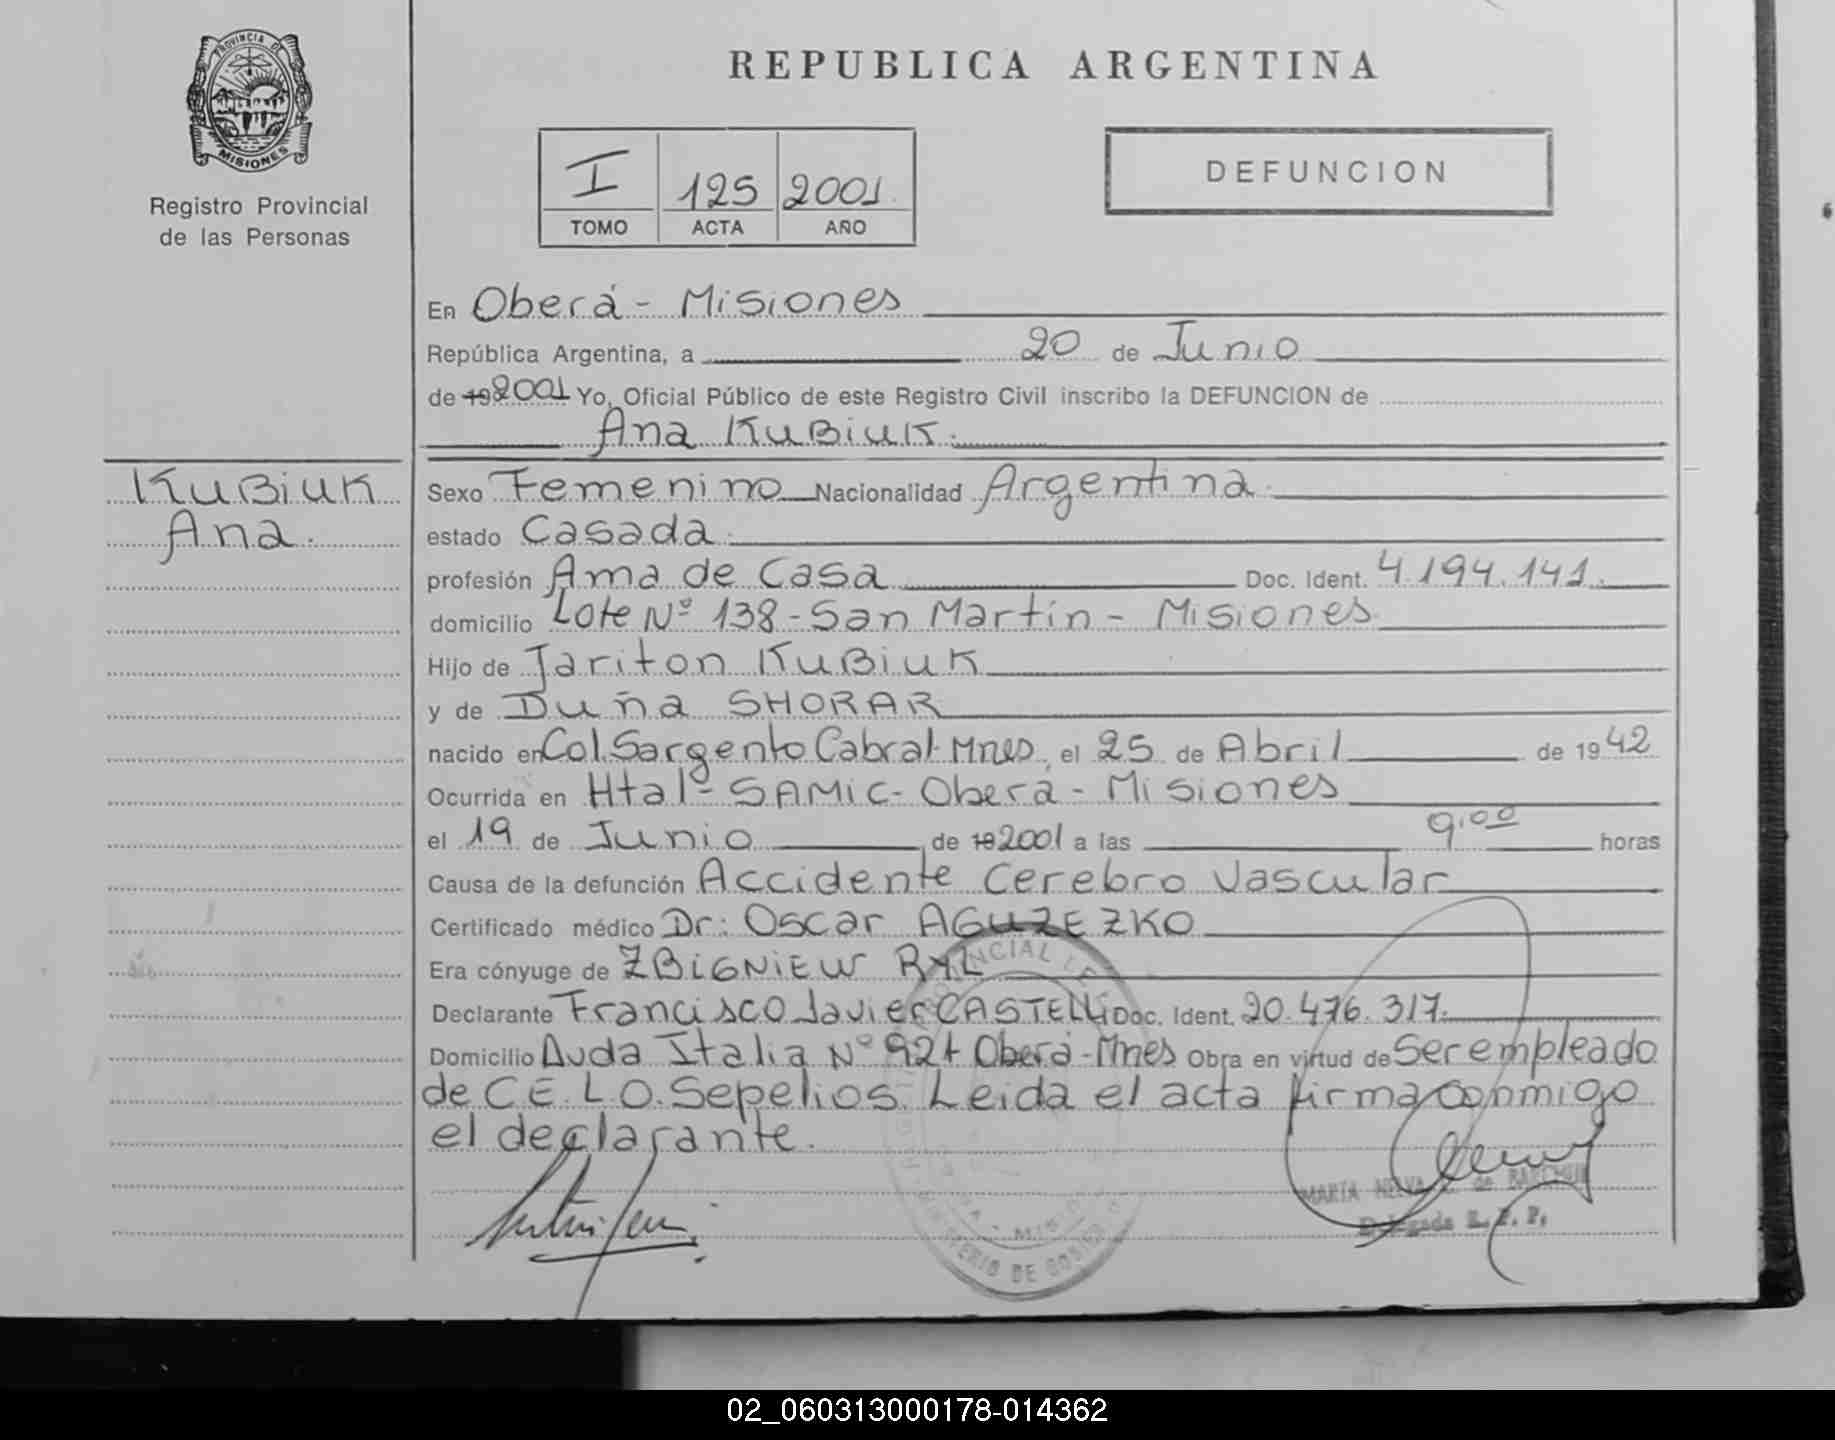 PROVINCIA DE
MISIONES
Registro Provincial
de las Personas
REPUBLICA ARGENTINA
I 125 2001
TOMO ACTA AÑO
DEFUNCION
En Oberá - Misiones
República Argentina, a 20 de Junio
de 19 2001 Yo, Oficial Público de este Registro Civil inscribo la DEFUNCION de
Ana KUBIUK.
KUBIUK
Ana.
Sexo Femenino Nacionalidad Argentina.
estado Casada.
profesión Ama de Casa Doc. Ident. 4.194.141.
domicilio Lote Nº 138 - San Martín - Misiones.
Hijo de Jariton KUBIUK
y de Duña SHORAR
nacido en Col. Sargento Cabral-Mnes, el 25 de Abril de 1942
Ocurrida en Htal- SAMIC - Oberá - Misiones
el 19 de Junio de 19 2001 a las 9.00 horas
Causa de la defunción Accidente Cerebro Vascular
Certificado médico Dr: Oscar AGUZEZKO
Era cónyuge de ZBIGNIEW RYL
Declarante Francisco Javier CASTELLI Doc. Ident. 20.476.317.
Domicilio Avda Italia Nº Oberá-Mnes Obra en virtud de Ser empleado
de C.E.L.O. Sepelios. Leida el acta firma conmigo
el declarante.
MARTA NELVA de
Delegada R. P. P.
MINISTERIO DE GOBIERNO
02_060313000178-014362